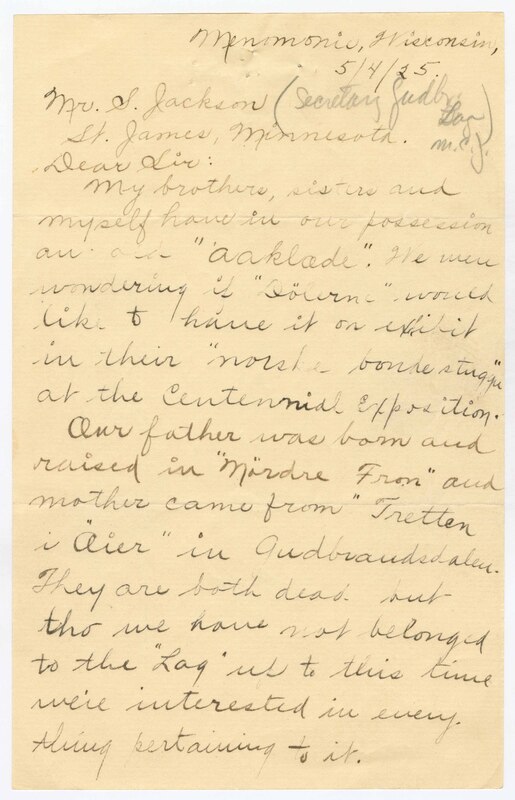 Menomonie, Wisconsin,
5/4/25.
Mr. S. Jackson (Secretary Gudb.
Lag
St. James, Minnesota. M.E.J.)
Dear Sir:
My brothers, sisters and
myself have in our possession
an old "aaklæde". We were
wondering if "Dölerne" would
like to have it on exibit
in their "norske bondestugu"
at the Centennial Exposition.
Our father was born and
raised in "Nördre Fron" and
mother came from "Tretten
i Öier" in Gudbrandsdalen.
They are both dead but
tho we have not belonged
to the "Lag" up to this time
we're interested in every-
thing pertaining to it.